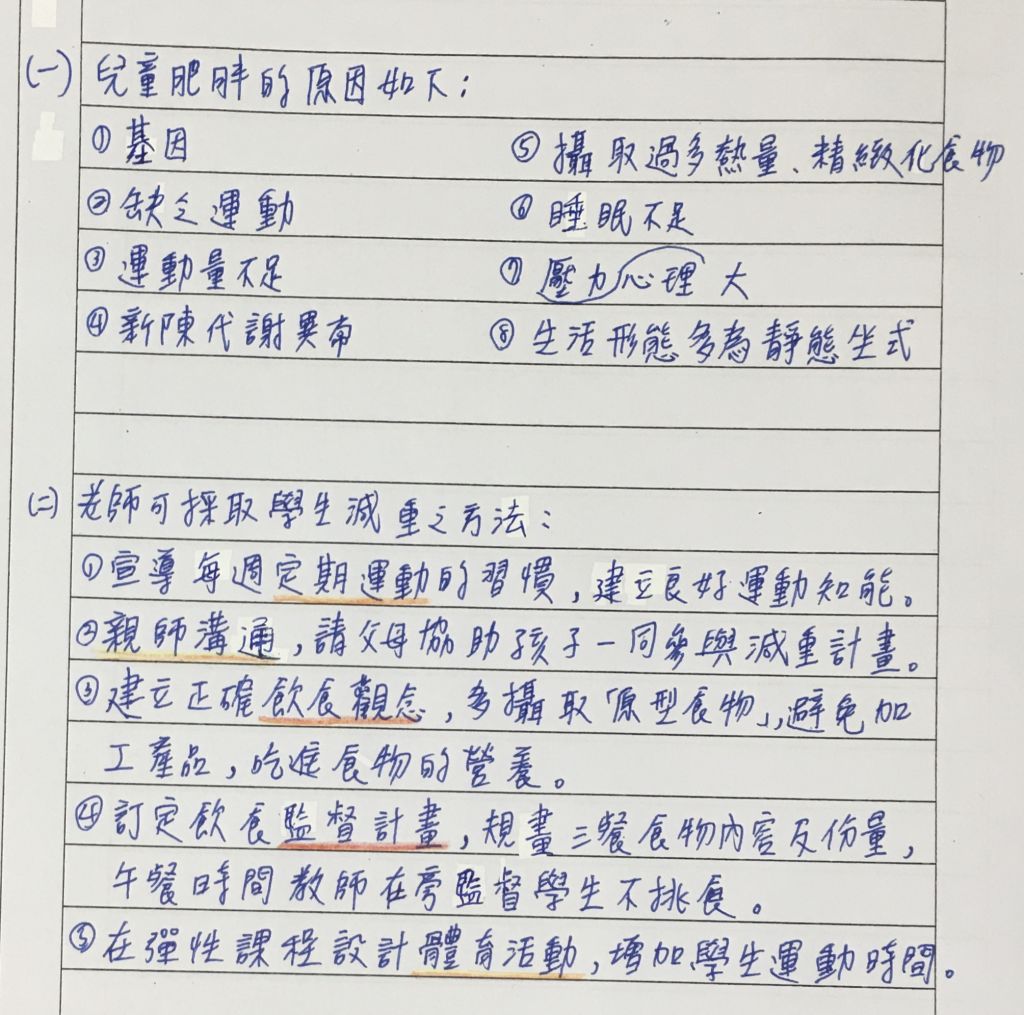 (一) 兒童肥胖的原因如下:
① 基因
② 缺乏運動
③ 運動量不足
④ 新陳代謝異常
⑤ 攝取過多熱量、精緻化食物
⑥ 睡眠不足
⑦ 壓力心理大
⑧ 生活形態多為靜態坐式
(二) 老師可採取學生減重之方法:
① 宣導每週定期運動的習慣,建立良好運動知能。
② 親師溝通,請父母協助孩子一同參與減重計畫。
③ 建立正確飲食觀念,多攝取「原型食物」,避免加
工產品,吃進食物的營養。
④ 訂定飲食監督計畫,規畫三餐食物內容及份量,
午餐時間教師在旁監督學生不挑食。
⑤ 在彈性課程設計體育活動,增加學生運動時間。